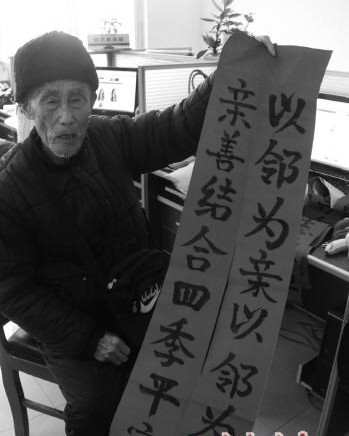 以邻为亲以邻为
亲善结合四季平